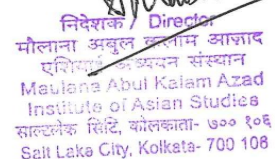 निदेशक / Director
मौलाना अबुल कलाम आज़ाद
एशियाई अध्ययन संस्थान
Maulana Abul Kalam Azad
Institute of Asian Studies
साल्टलेक सिटि, कोलकाता- ७०० १०६
Salt Lake City, Kolkata- 700 108